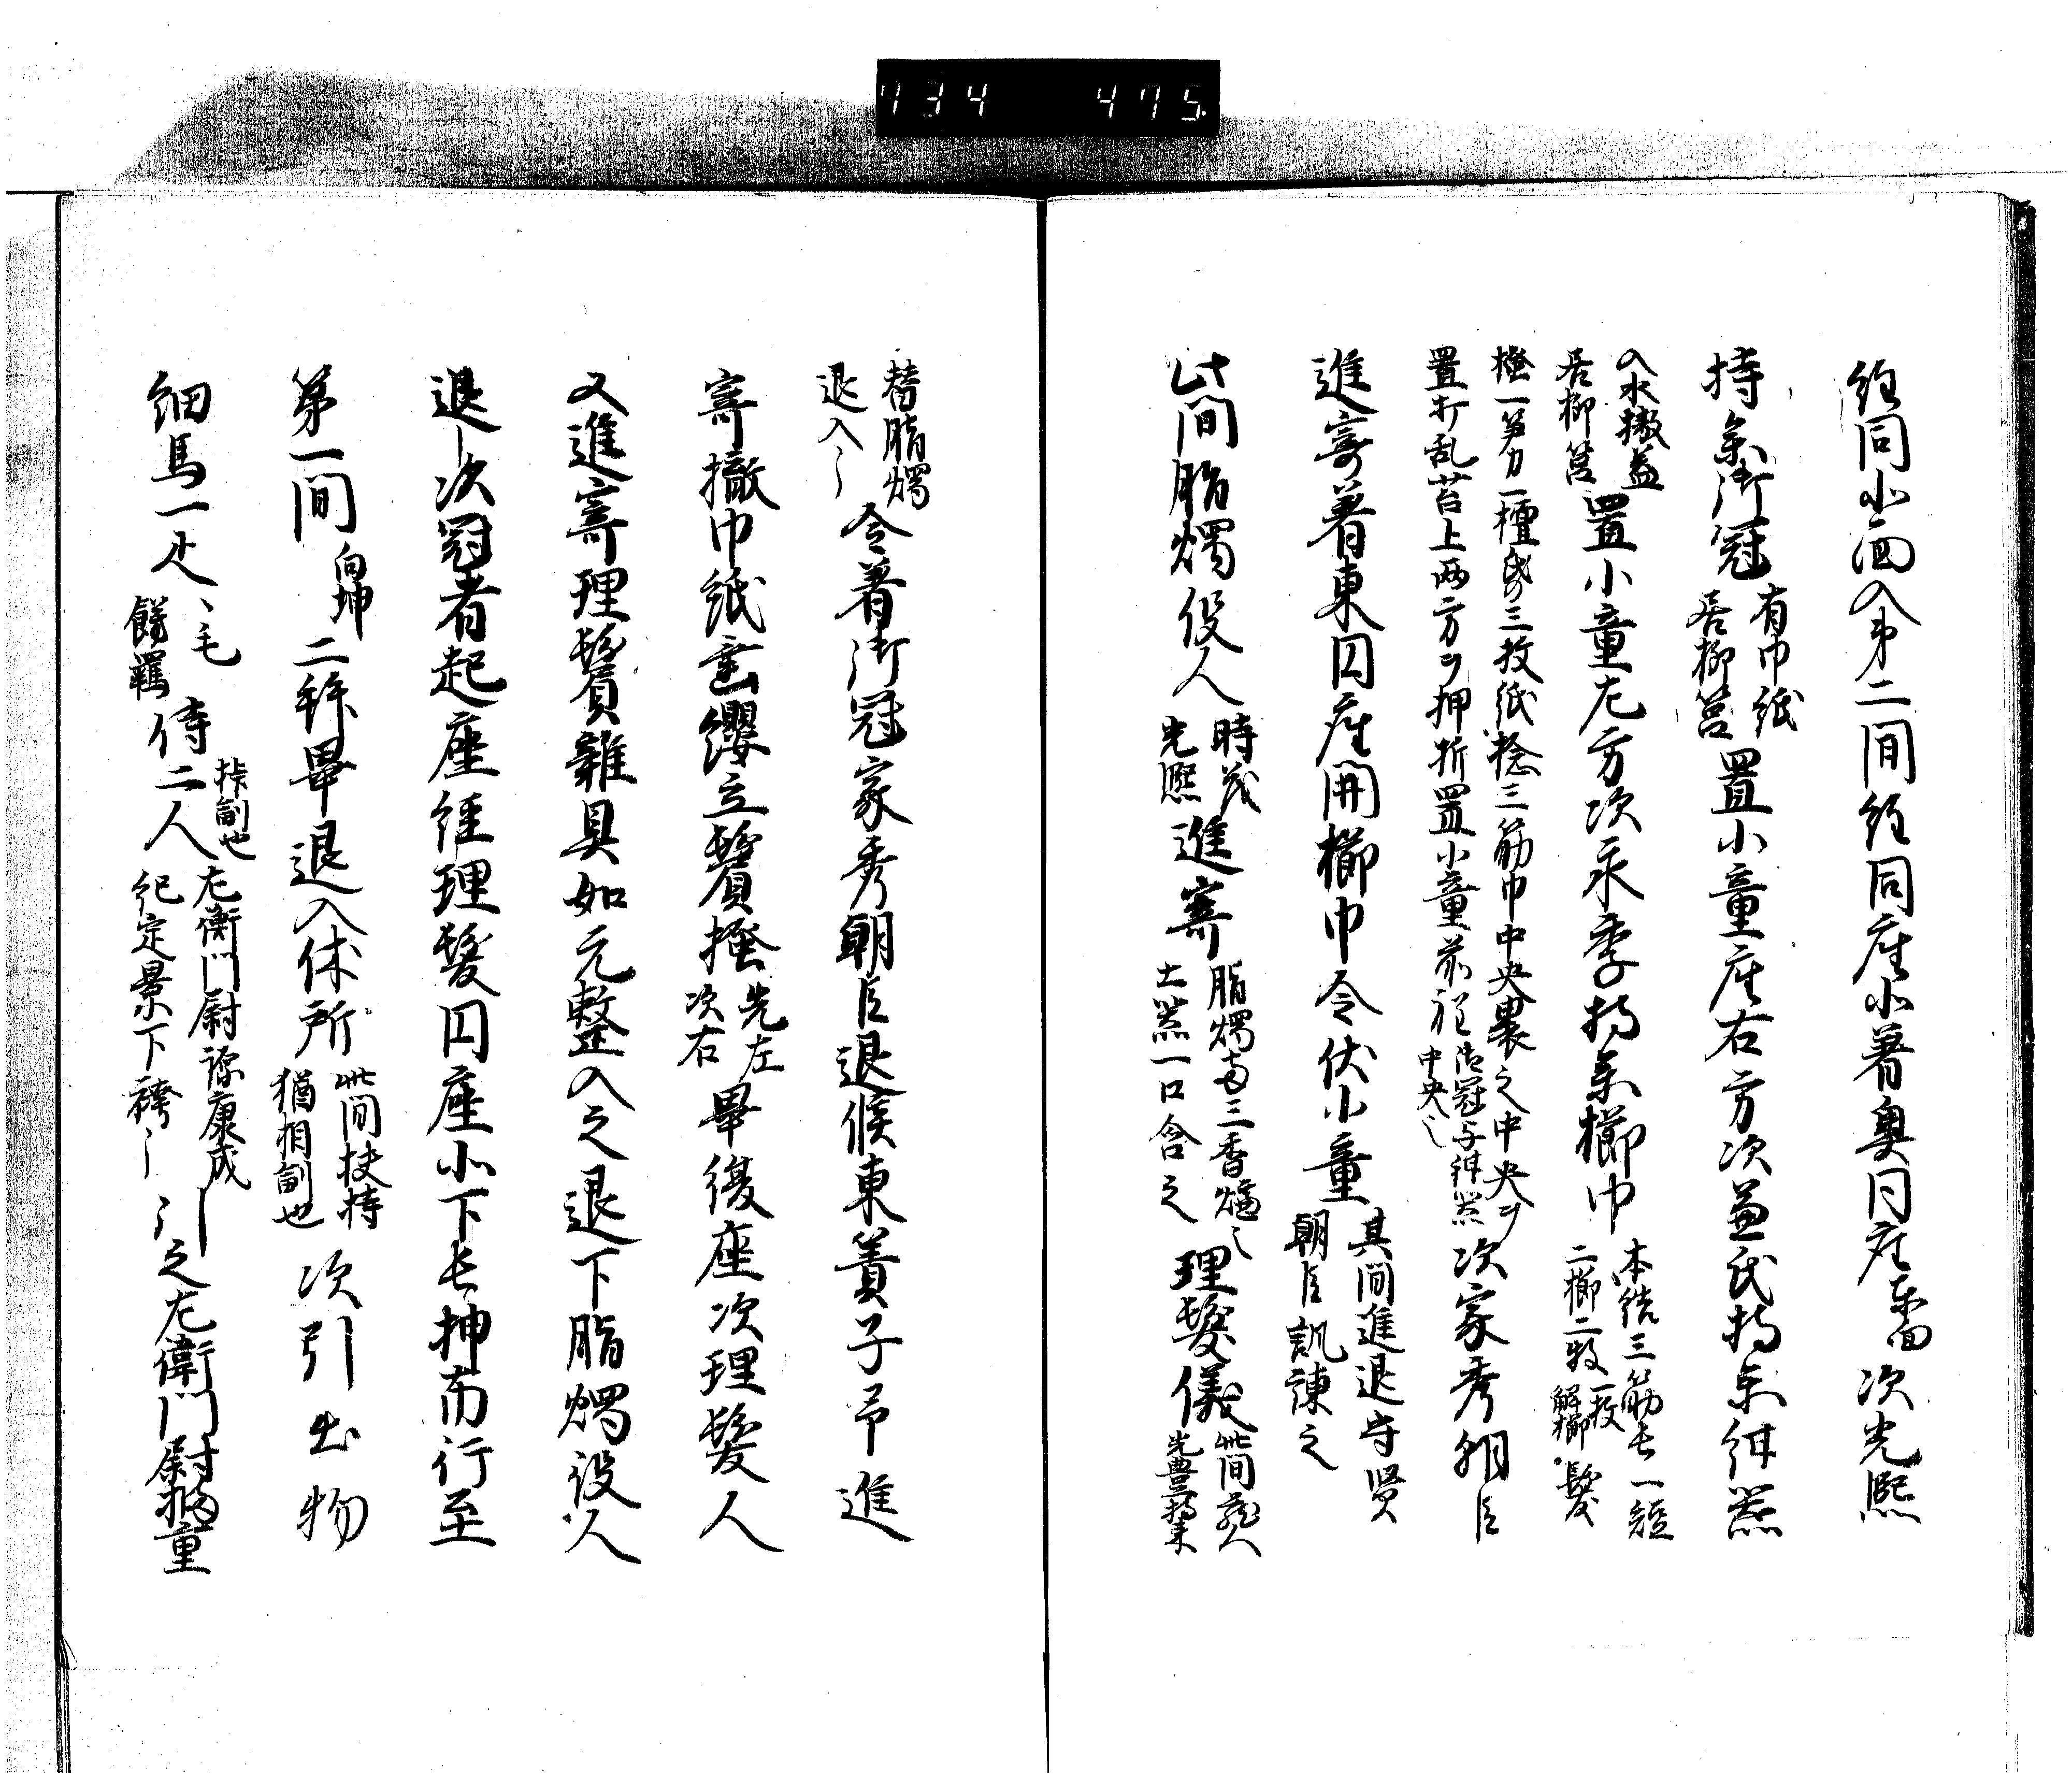 734 475
経同北面入第二間経同座北着奥円座東面次光熙
持参御冠有巾紙居柳筥置小童座右方次兼氏持参泔器
入水撤蓋居柳筥置小童左方次永季持参櫛巾本結三筋長一短二櫛二枚一枚解櫛髪
掻一笄刀一種帋三枚紙捻三筋巾中央裹之中央ヲ
置打乱筥上両方ヲ押折置小童前程御冠与泔器中央也次家秀朝臣
進寄着東円座開櫛巾令伏小童其間進退守賢朝臣諷諫之
此間脂燭役人時茂光熙進寄脂燭三香爐土器一口含之理髪儀此間
替脂燭退入令着御冠家秀朝臣退候東簀子予進
寄撤巾紙垂纓立鬢掻先左次右畢復座次理髪人
又進寄理鬢雑具如元整入之退下脂燭役人
退次冠者起座経理髪円座北下長押南行至
第一間向坤二拝畢退入休所此間扶持猶相副也次引出物
細馬一疋毛餝羈侍二人相副也左衛門尉源康成紀定景下袴引之左衛門尉重